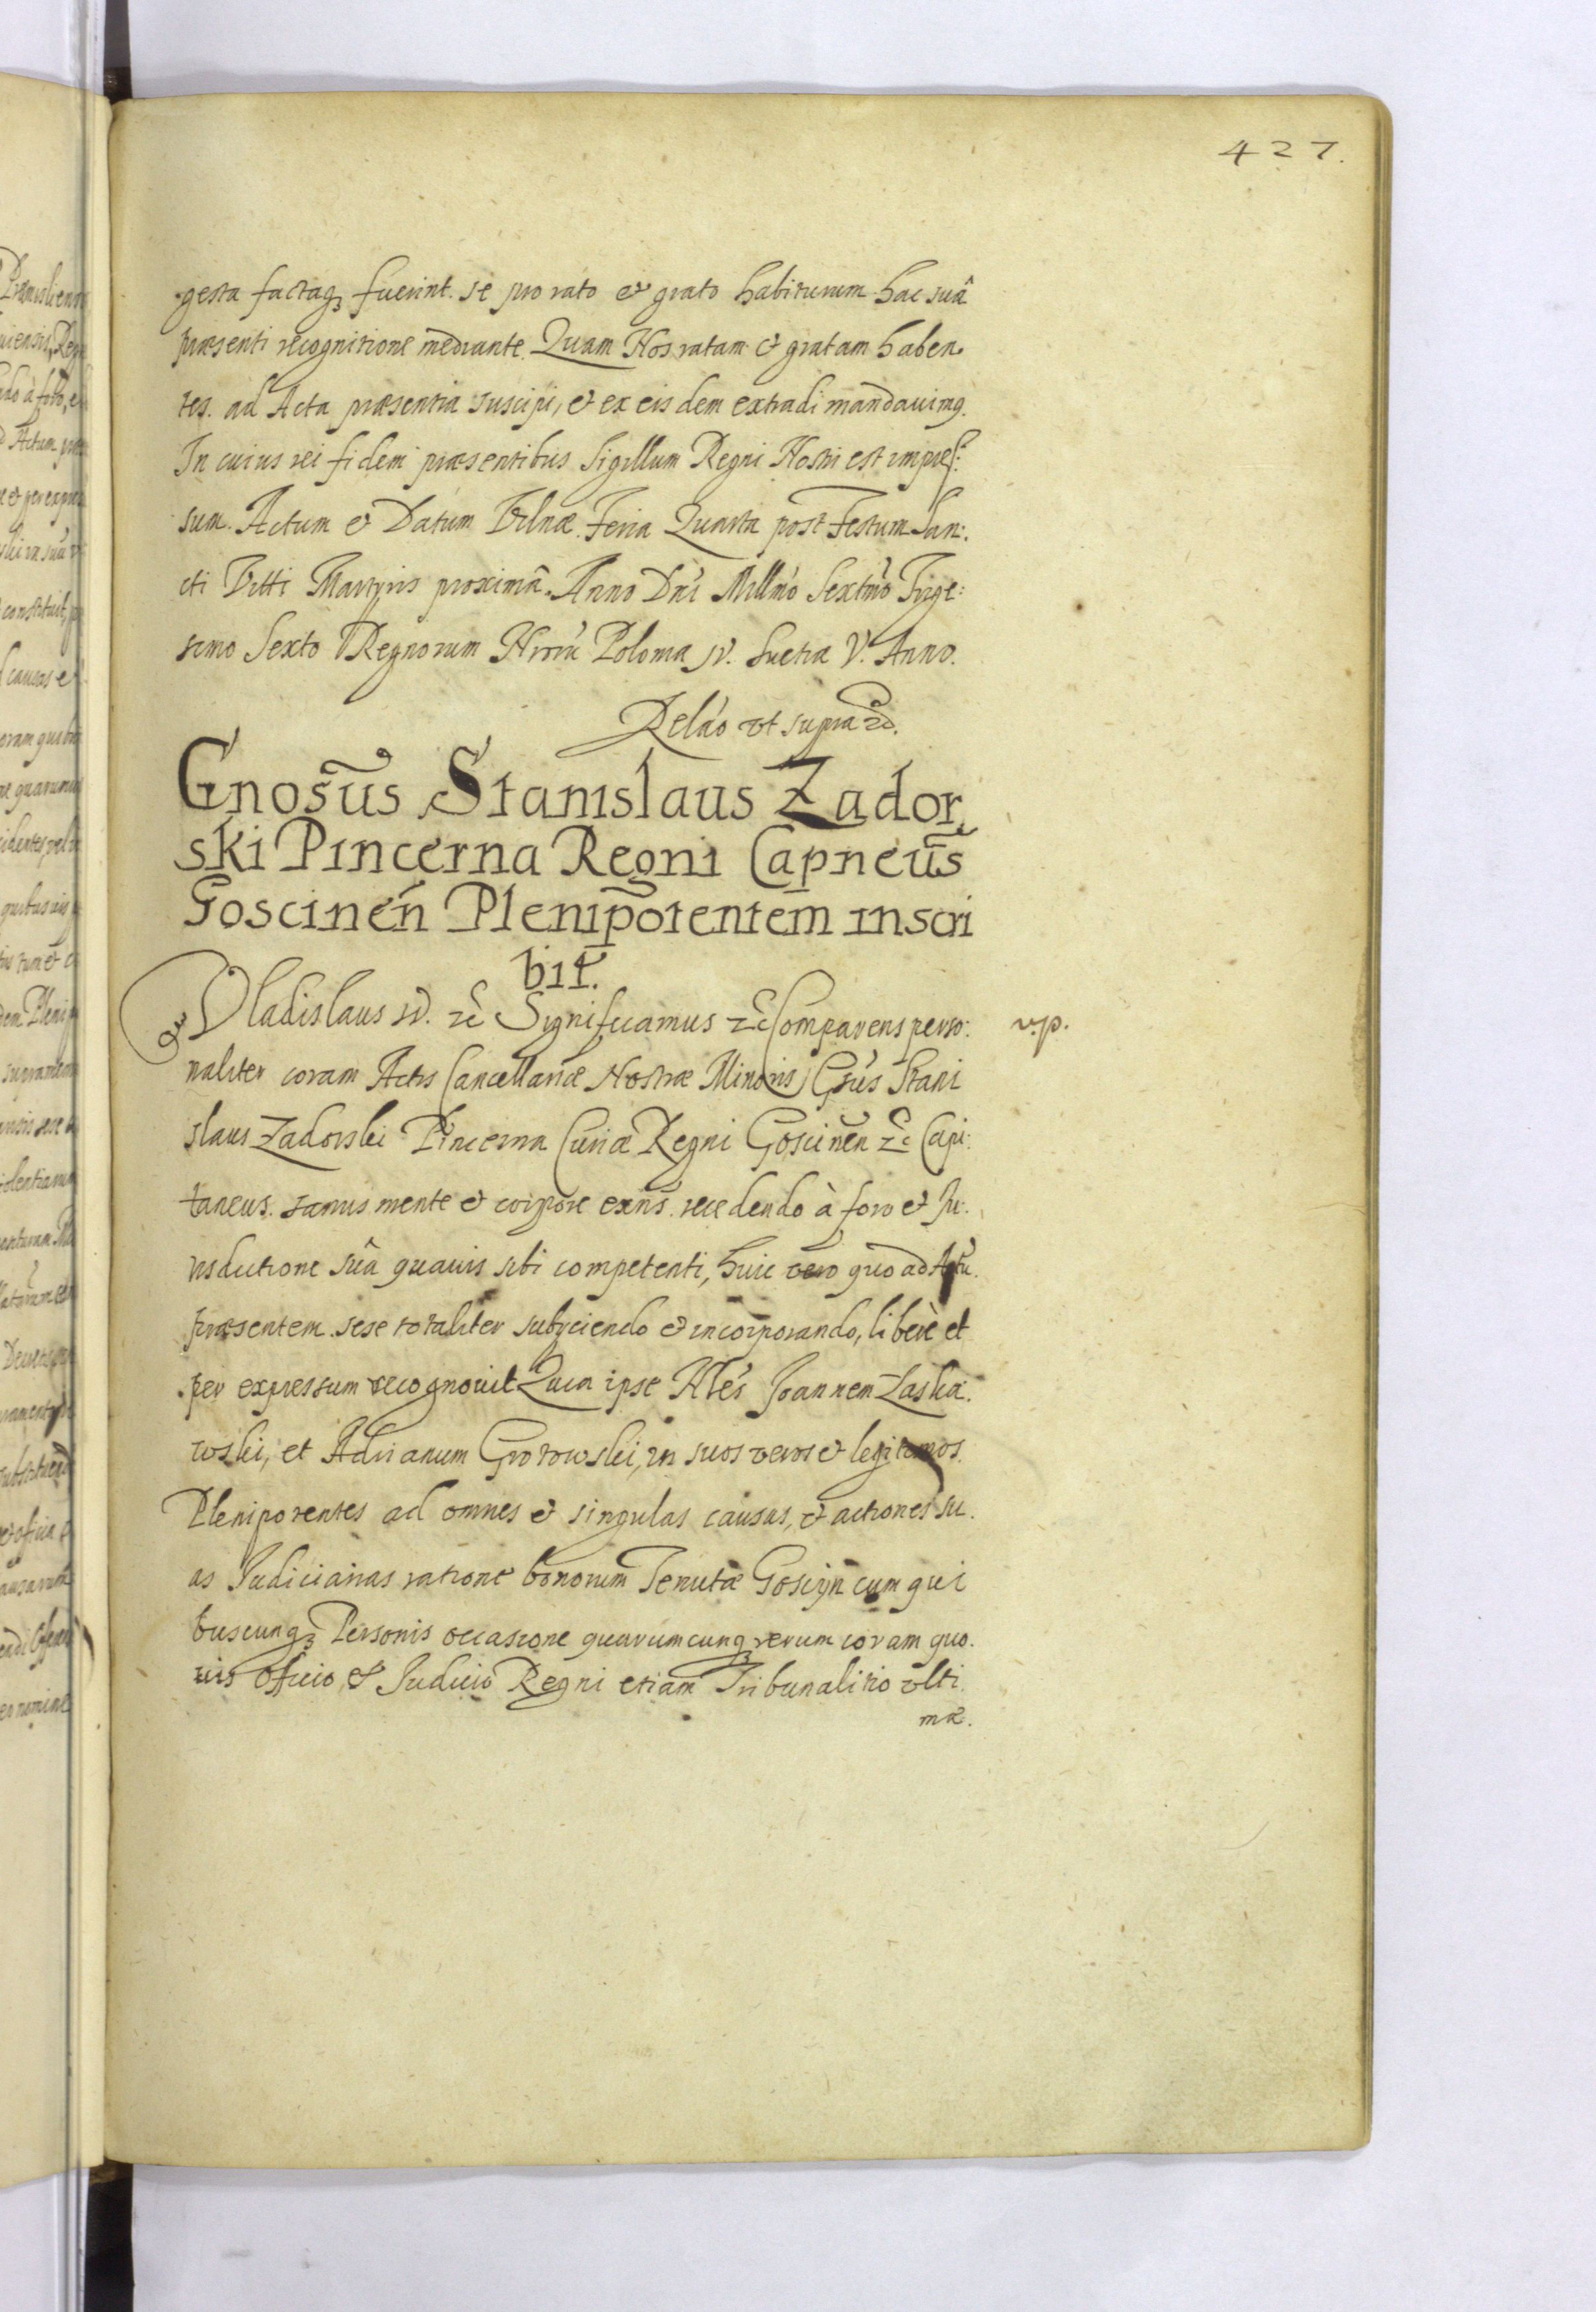 427.
gesta factaq₃ fuerint. se pro rato & grato habiturum hac suâ
præsenti recognitione mediante. Quam Nos ratam & gratam haben
tes. ad Acta præsentia suscipi, & ex eisdem extradi mandauimq.
In cuius rei fidem præsentibus Sigillum Regni Nostri est impreſ:
sum. Actum & Datum Vilnæ. Feria Quarta post Festum San:
cti Vitti Martyris proximâ. Anno Dńi Millm̃o Sextm̃o Trige:
simo Sexto Regnorum Nrorũ Poloniæ IV. Suetiæ V. Anno.
Relão vt supra
Gnosũs Stanislaus Zador
ski Pincerna Regni Capneũs
Goscineñ Plenipotentem inscri
bit.
Vladislaus IV. &c Significamus &c Comparens perso:
v.p.
naliter coram Actis Cancellariæ Nostræ Minoris Gsũs Stani
slaus Zadorski Pincerna Curiæ Regni Goscineñ &c Capi:
taneus. sanus mente & corpore exñs. recedendo à foro et Ju:
risdictione suâ quauis sibi competenti, huic vero quo ad Actũ
præsentem sese totaliter subijciendo & incorporando, liberè et
per expressum recognouit Quia ipse Joannem Laska
wski, et Adrianum Grotowski, in suos veros & legitimos.
Plenipotentes ad omnes & singulas causas, & actiones su
as Judiciarias ratione bonorum Tenutæ Gosciyn cum qui
buscunq₃ Personis occasione quarumcunq₃ rerum coram quo
uis Officio & Judicio Regni etiam Tribunalitio vlti
mæ.